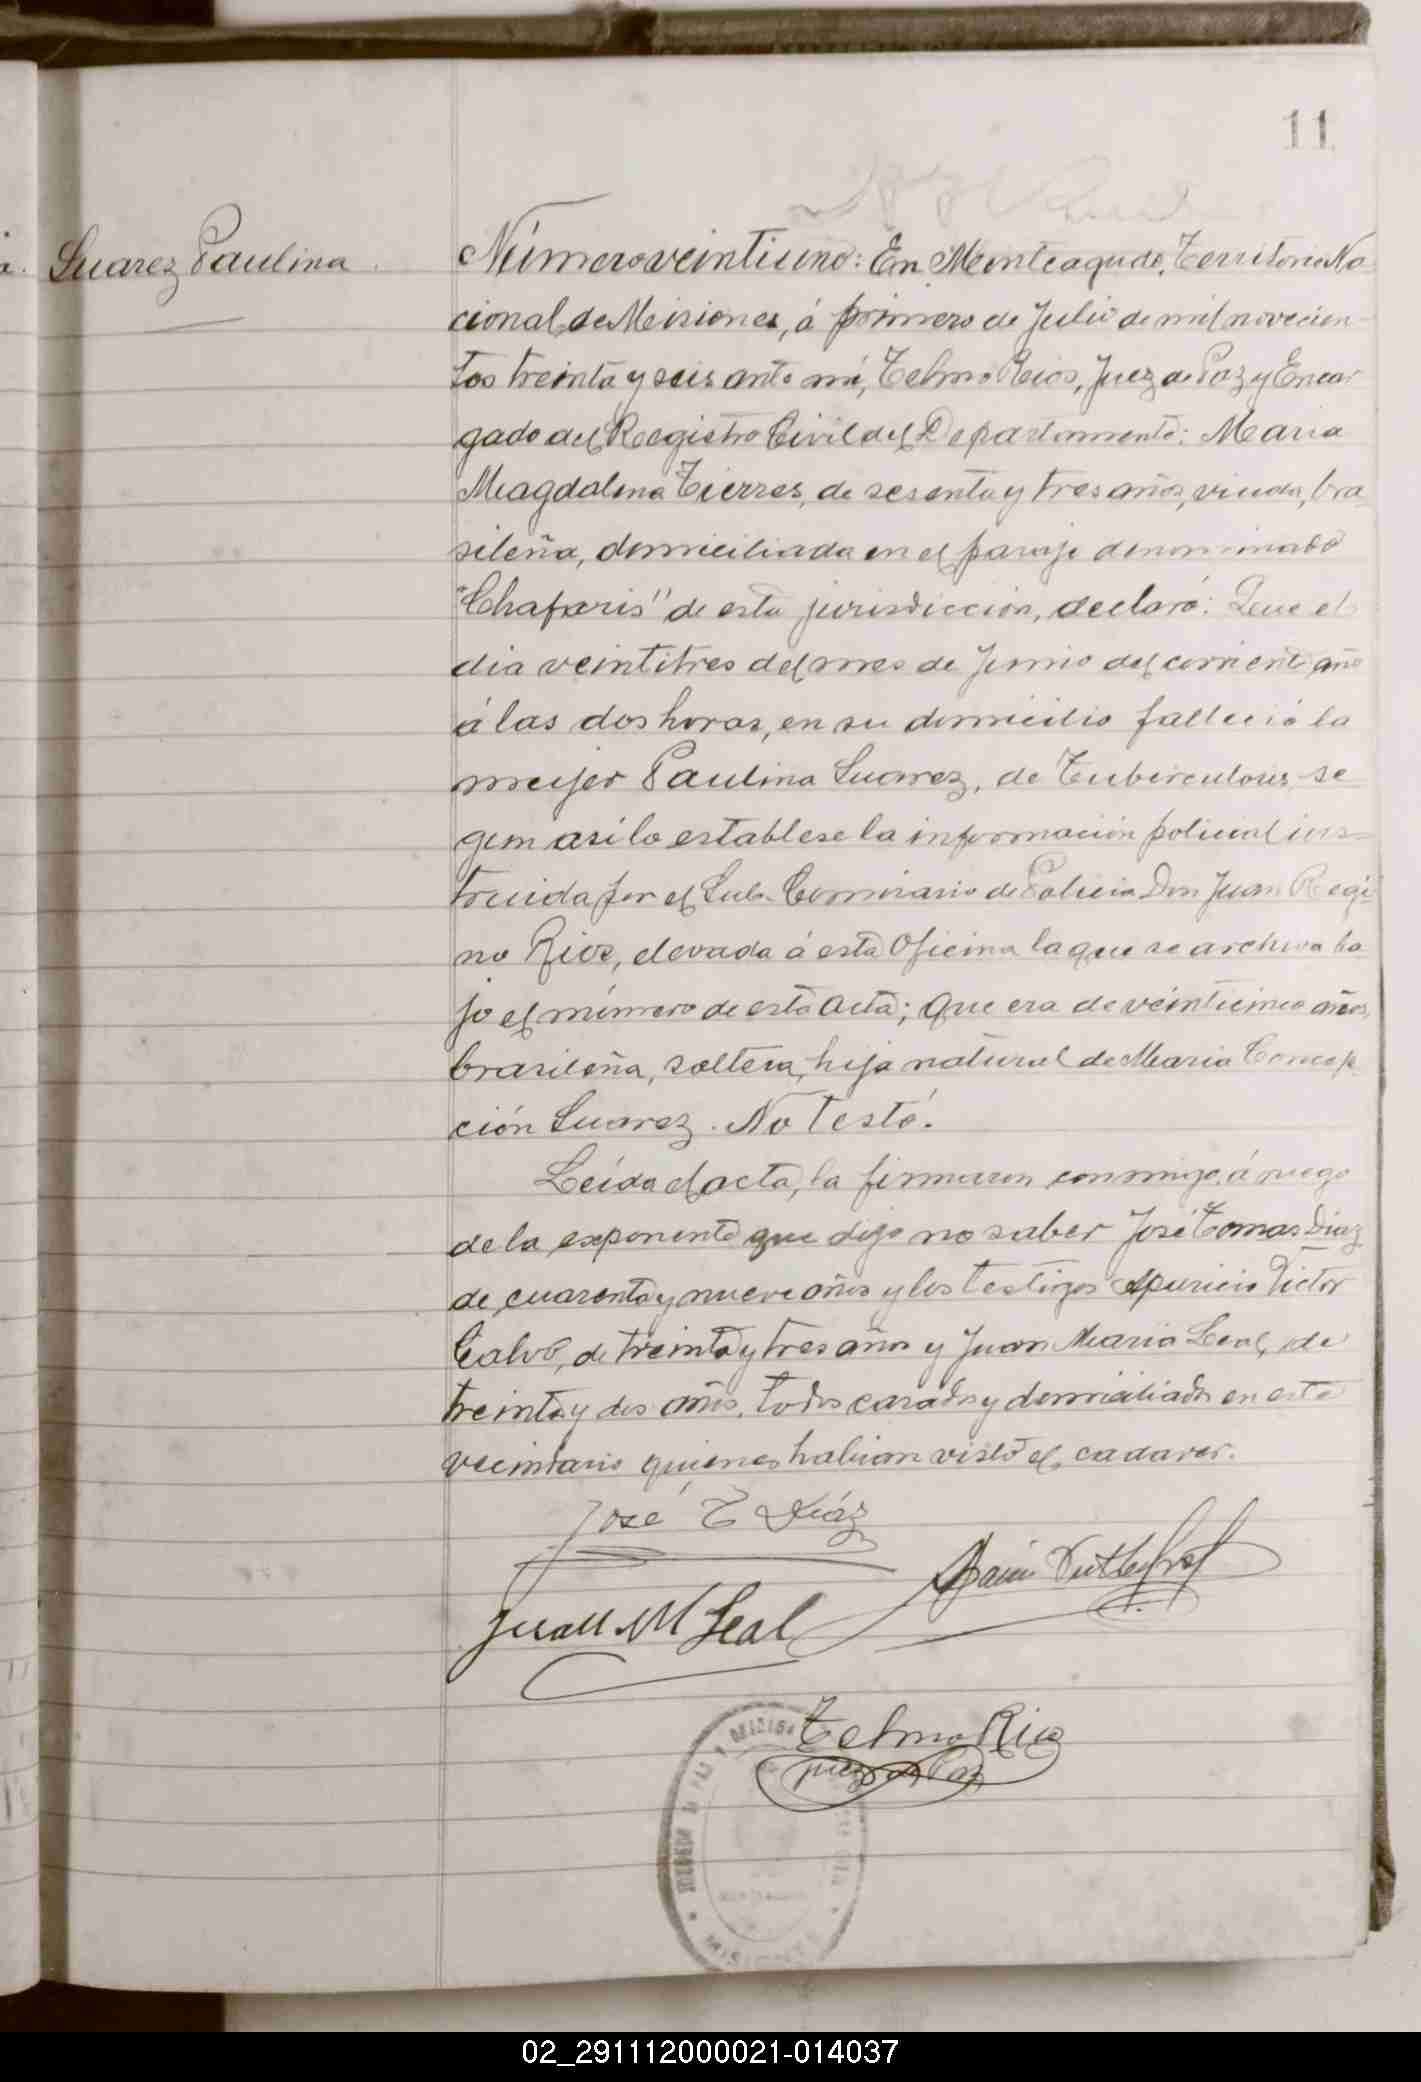 11
Suarez Paulina
Número veintiuno: En Monteagudo, Territorio Na
cional de Misiones, á primero de Julio de mil novecien-
tos treinta y seis ante mí, Telmo Rios, Juez de Paz y Encar
gado del Registro Civil del Departamento: Maria
Magdalena Tierres, de sesenta y tres años, viuda, bra
sileña, domiciliada en el paraje denominado
"Chafaris" de esta jurisdicción, declaró: Que el
dia veintitres del mes de Junio del corriente año
á las dos horas, en su domicilio falleció la
mujer Paulina Suarez, de Tuberculosis, se
gun asi lo establese la información policial ins-
truida por el Sub-Comisario de Policia Don Juan Regi
no Rios, elevada á esta Oficina la que se archiva ba
jo el número de esta acta; que era de veinticinco años,
brasileña, soltera, hija natural de Maria Concep
ción Suarez. No Testó.
Leída el acta, la firmaron conmigo, á ruego
de la exponente que dijo no saber José Tomas Diaz
de cuarenta y nueve años y los testigos Aparicio Victor
Calvo, de treinta y tres años y Juan Maria Leal, de
treinta y dos años, todos casados y domiciliados en este
vecindario quienes habian visto el cadaver.
José T Díaz
Juan M Leal
Telmo Rios
Juez de Paz
MISIONES
02_291112000021-014037